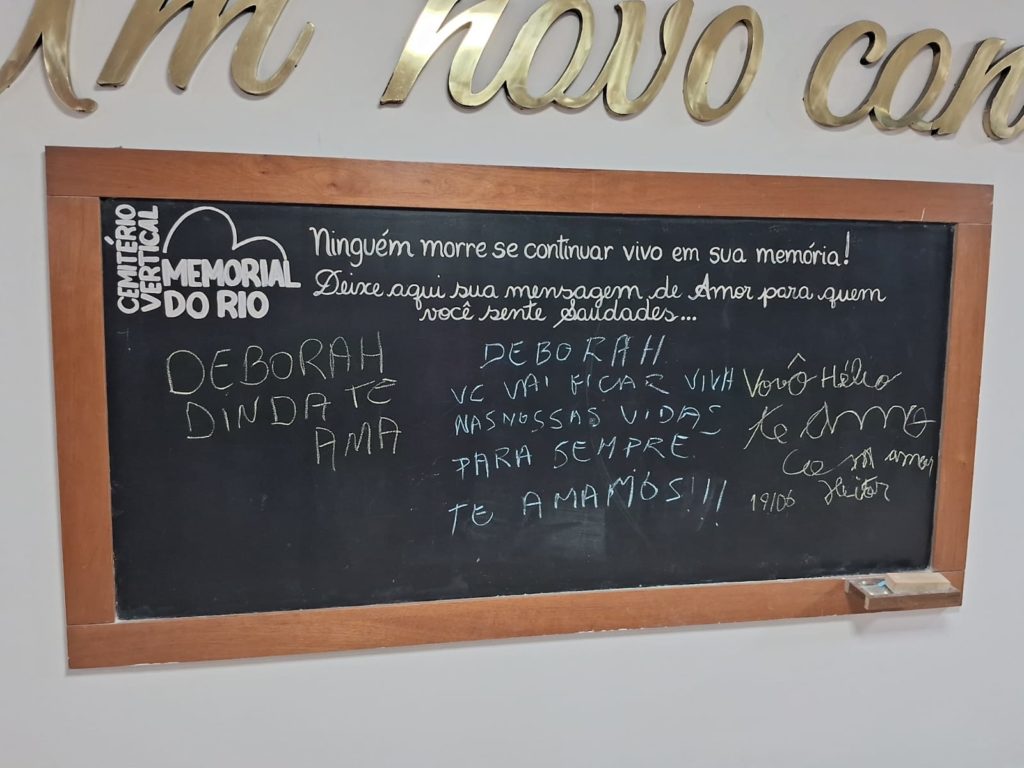 um novo con
CEMITÉRIO
VERTICAL
MEMORIAL
DO RIO
Ninguém morre se continuar vivo em sua memória!
Deixe aqui sua mensagem de Amor para quem
você sente saudades...
DEBORAH
DINDA TE
AMA
DEBORAH
VC VAI FICAR VIVA
NAS NOSSAS VIDAS
PARA SEMPRE.
TE AMAMOS!!!
Vovô Hélio
te Amo
amor
Heitor
19/06